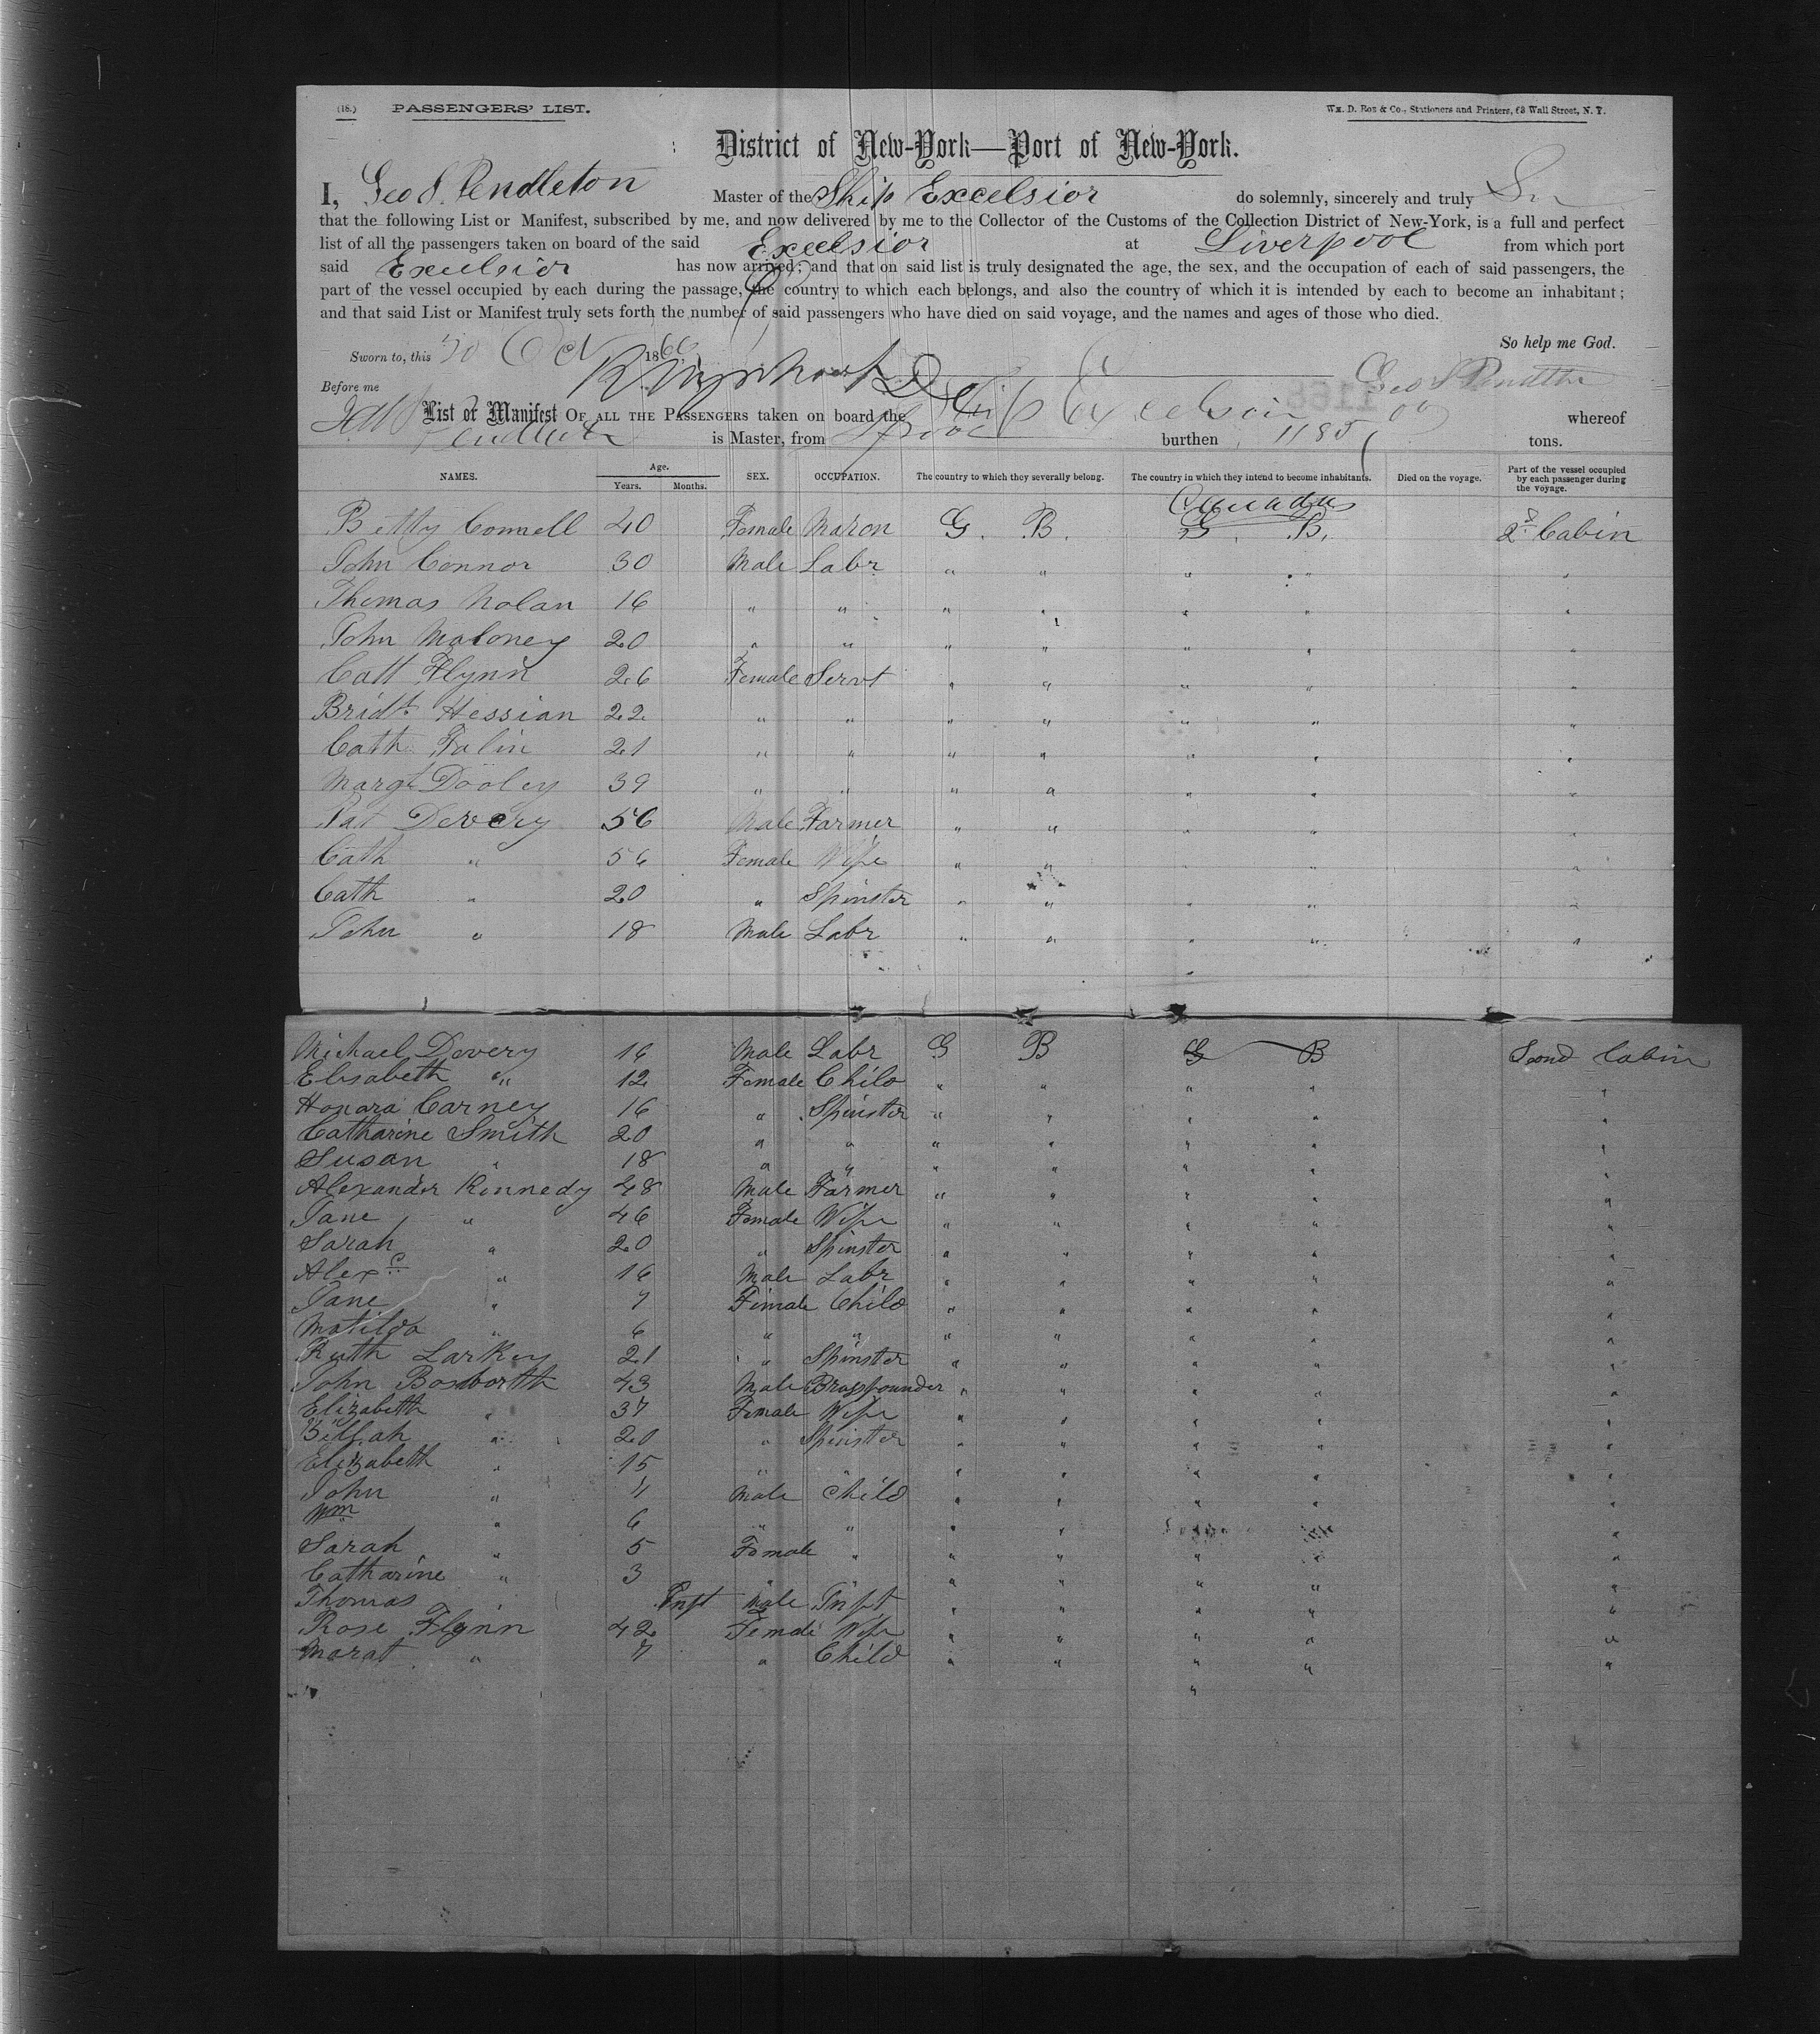 (18.) PASSENGERS' LIST. Wm. D. Roe & Co., Stationers and Printers, 63 Wall Street, N. Y.
District of New-York—Port of New-York.
I, Geo S. Pendleton Master of the Ship Excelsior do solemnly, sincerely and truly
that the following List or Manifest, subscribed by me, and now delivered by me to the Collector of the Customs of the Collection District of New-York, is a full and perfect
list of all the passengers taken on board of the said Excelsior at Liverpool from which port
said Excelsior has now arrived; and that on said list is truly designated the age, the sex, and the occupation of each of said passengers, the
part of the vessel occupied by each during the passage, the country to which each belongs, and also the country of which it is intended by each to become an inhabitant;
and that said List or Manifest truly sets forth the number of said passengers who have died on said voyage, and the names and ages of those who died.
So help me God.
Sworn to, this 1866
Before me Geo S Pendleton
List or Manifest OF ALL THE PASSENGERS taken on board the Ship Excelsior whereof
Pendleton is Master, from Lpool burthen 1185 tons.
NAMES. Age. Years. Months. SEX. OCCUPATION. The country to which they severally belong. The country in which they intend to become inhabitants. Died on the voyage. Part of the vessel occupied by each passenger during the voyage.
Betty Connell 40 Female Matron G. B. G. B. 2d Cabin
John Connor 30 Male Labr " " " " "
Thomas Nolan 16 " " " " " " "
John Maloney 20 " " " " " " "
Cath Flynn 26 Female Servt " " " " "
Bridt Hessian 22 " " " " " " "
Cath Falin 21 " " " " " " "
Margt Dooley 39 " " " " " " "
Pat Devery 56 Male Farmer " " " " "
Cath " 56 Female Wife " " " " "
Cath " 20 " Spinster " " " " "
John " 18 Male Labr " " " " "
Michael Devery 16 Male Labr G B G B Second Cabin
Elisabeth " 12 Female Child " " " " "
Honora Carney 16 " Spinster " " " " "
Catharine Smith 20 " " " " " " "
Susan " 18 " " " " " " "
Alexander Kennedy 48 Male Farmer " " " " "
Jane " 46 Female Wife " " " " "
Sarah " 20 " Spinster " " " " "
Alexr " 16 Male Labr " " " " "
Jane " 7 Female Child " " " " "
Matilda " 6 " " " " " " "
Ruth Larkey 21 " Spinster " " " " "
John Bosworth 43 Male Brassfounder " " " " "
Elizabeth " 37 Female Wife " " " " "
" 20 " Spinster " " " " "
Elizabeth " 15 " " " " " " "
John " 11 Male Child " " " " "
Wm " 6 " " " " " " "
Sarah " 5 Female " " " " " "
Catharine " 3 " " " " " " "
Thomas " Inft Male Inft " " " " "
Rose Flynn 42 Female Wife " " " " "
Margt " 7 " Child " " " " "